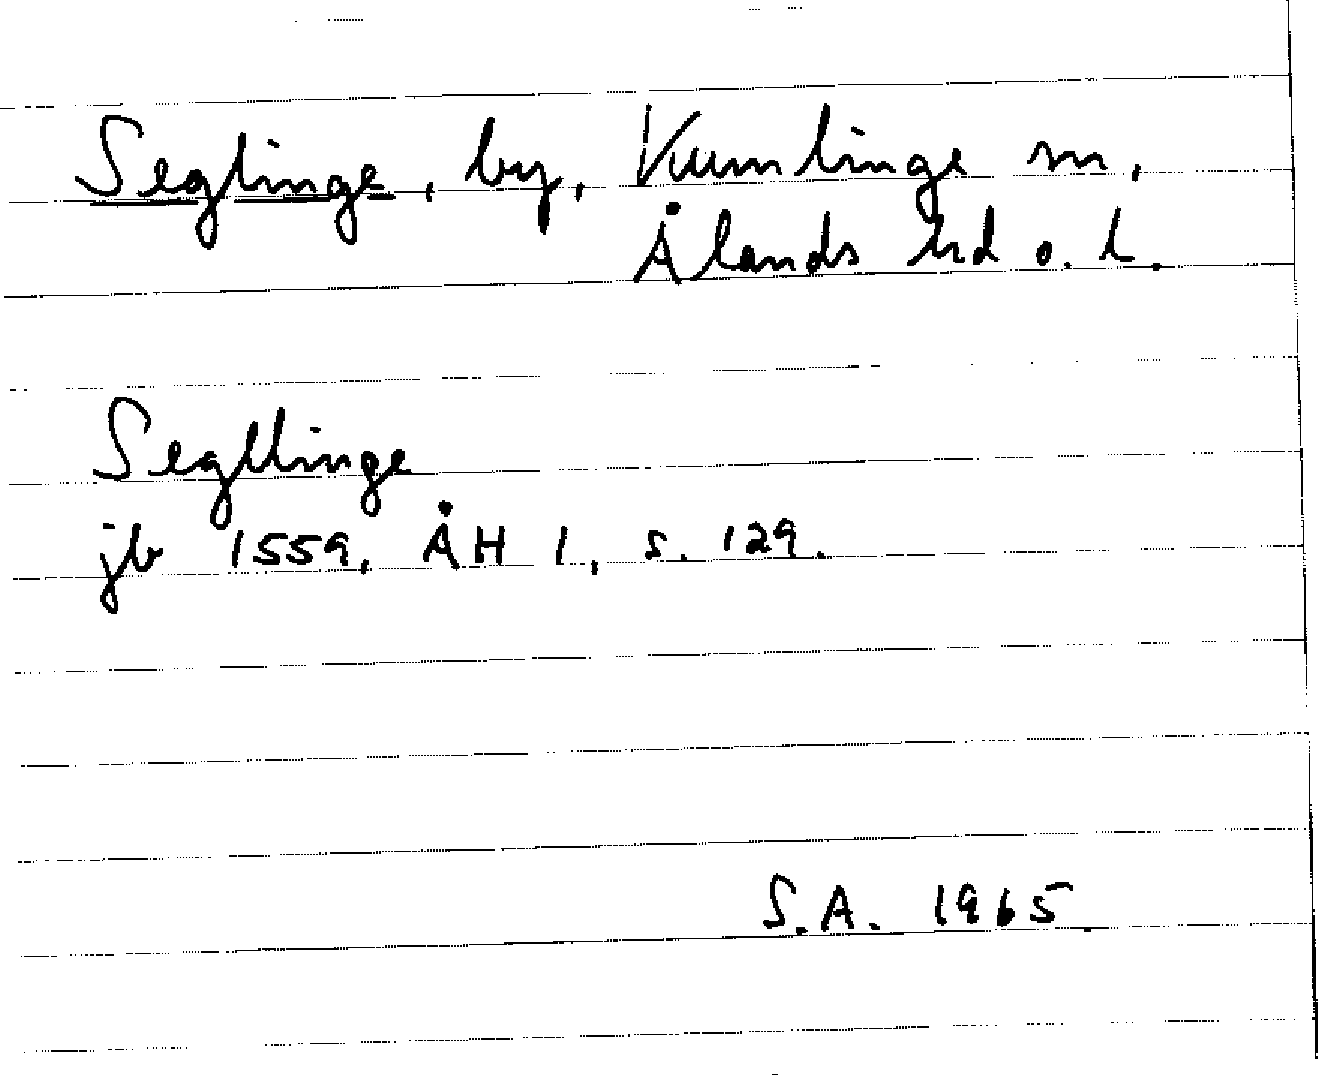 Seglinge, by, Kumlinge sn,
Ålands hd o. l.
Segllinge
jb 1559, ÅH 1, s. 129.
S.A. 1965